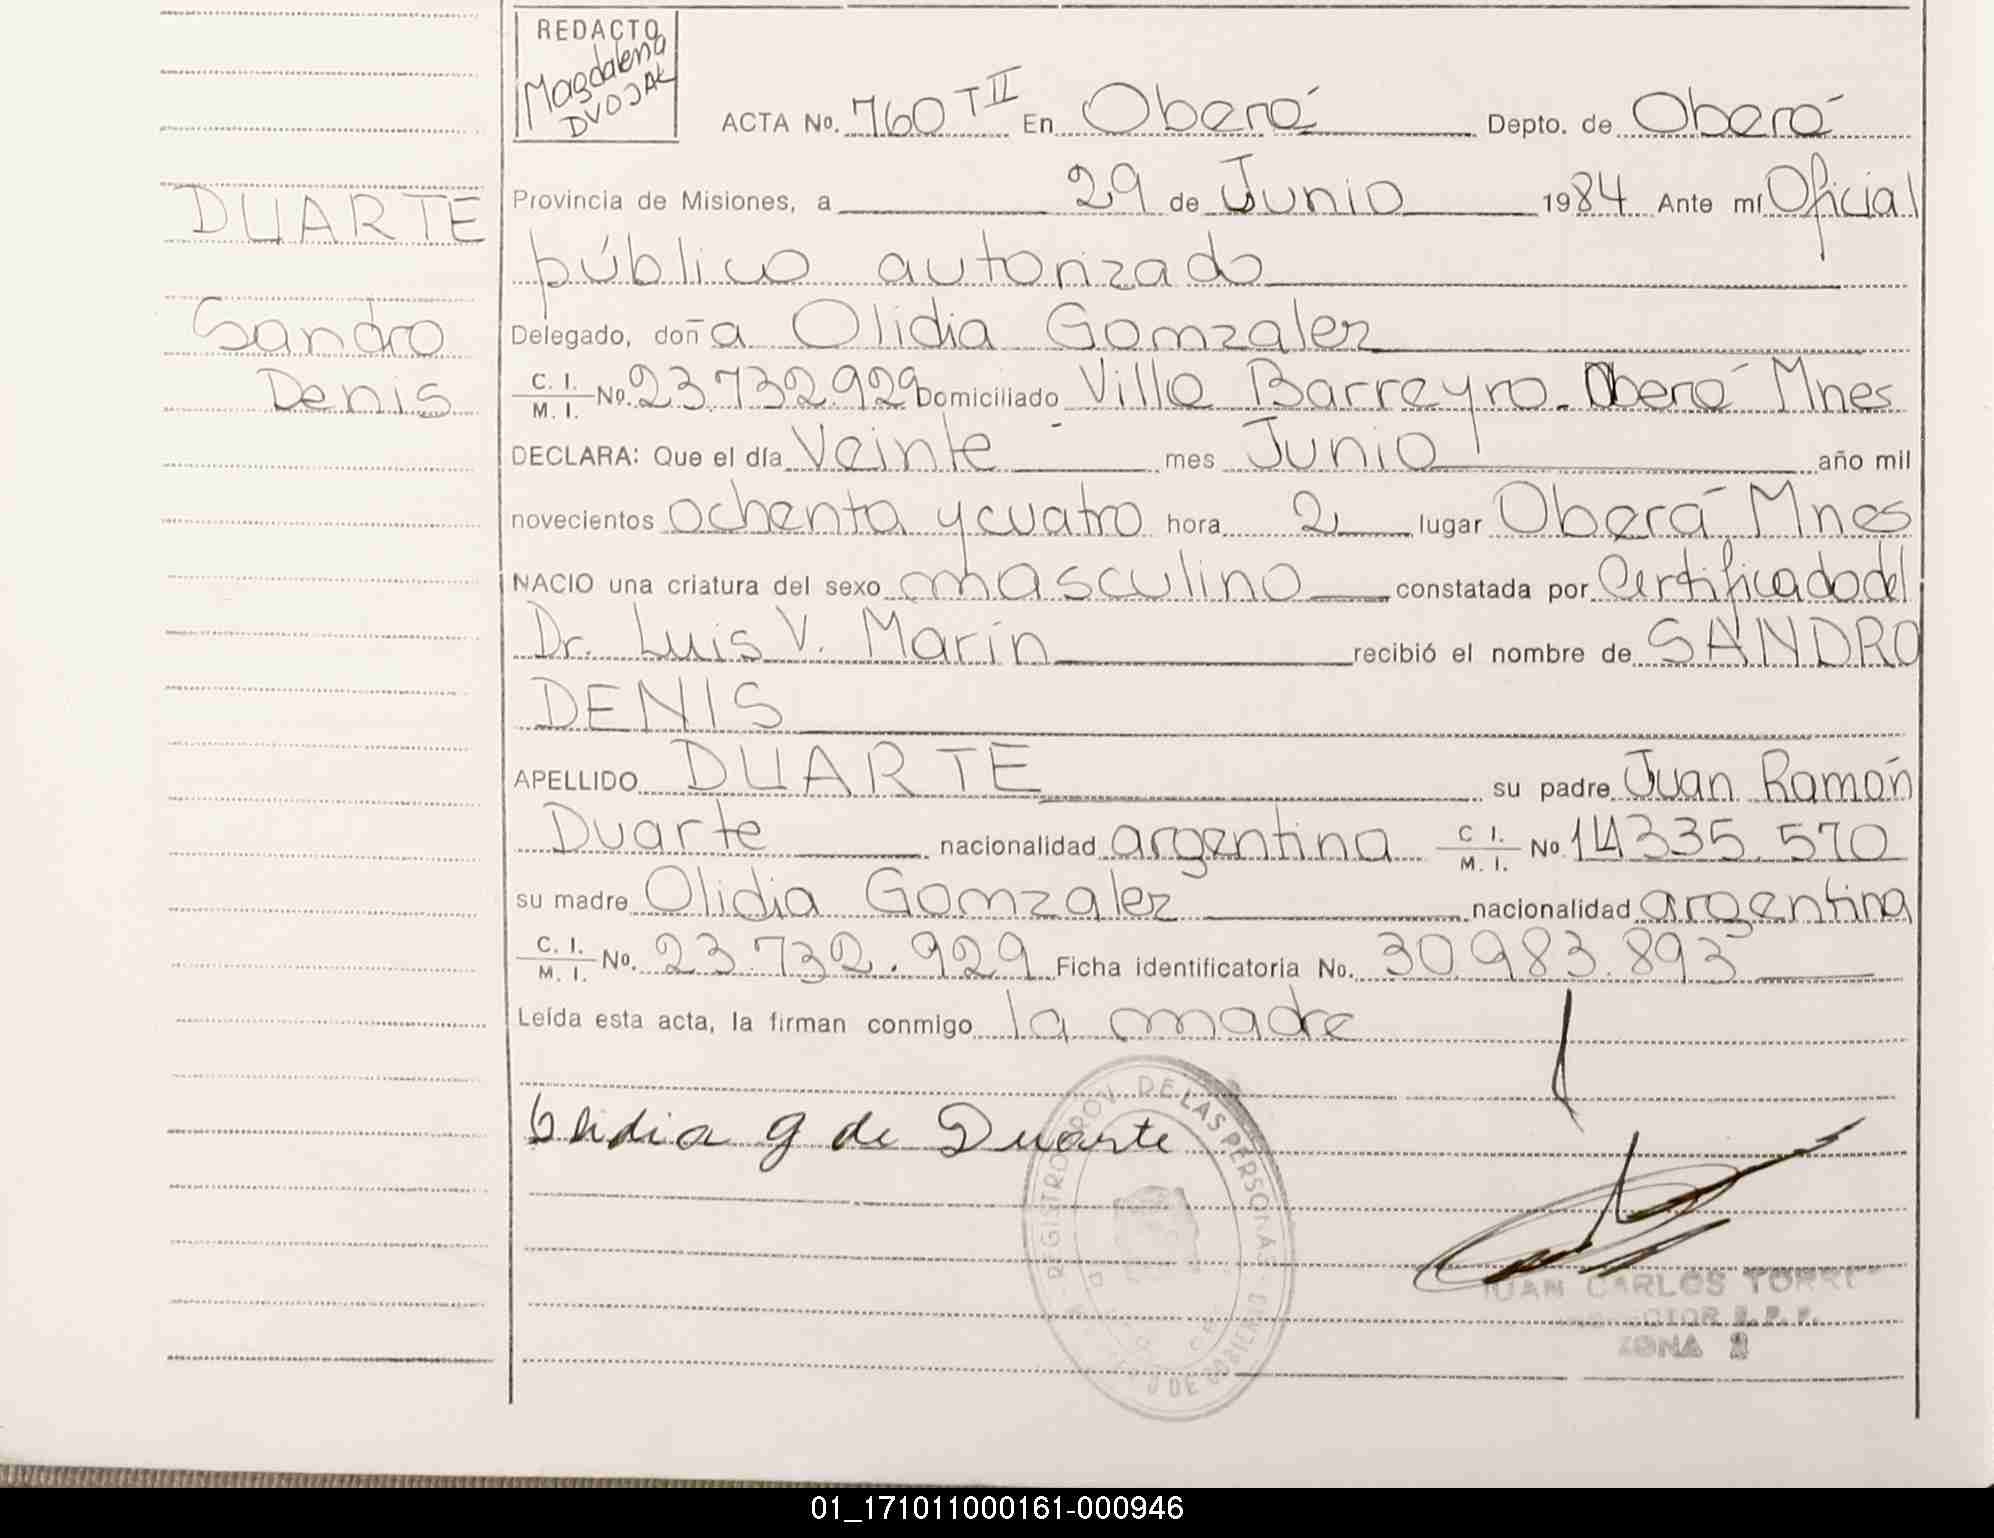 REDACTO
Magdalena
DVOJAK
ACTA No. 760 T II En Oberá Depto. de Oberá
DUARTE
Provincia de Misiones, a 29 de Junio 1984 Ante mí Oficial
público autorizado
Sandro
Delegado, doña Olidia Gomzalez
Denis
C. I. / M. I. No. 23.732.929 Domiciliado Villa Barreyro - Oberá Mnes
DECLARA: Que el día Veinte mes Junio año mil
novecientos ochenta y cuatro hora 2 lugar Oberá Mnes
NACIO una criatura del sexo masculino constatada por Certificado del
Dr. Luis V. Marín recibió el nombre de SANDRO
DENIS
APELLIDO DUARTE su padre Juan Ramón
Duarte nacionalidad argentina C I. / M. I. No 14335.570
su madre Olidia Gomzalez nacionalidad argentina
C. I. / M. I. No. 23.732.929 Ficha identificatoria No. 30983.893
Leída esta acta, la firman conmigo la madre
Olidia g de Duarte
REGISTRO PROV. DE LAS PERSONAS
DE GOBIERNO
JUAN CARLOS TORRES
ZONA 2
01_171011000161-000946